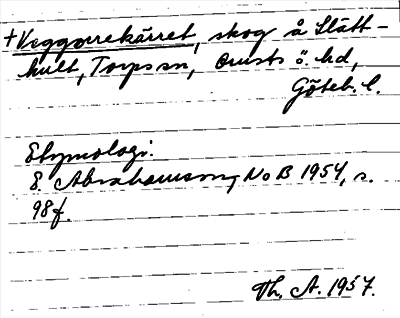 +Veggorrekärret, skog å Slätt-
hult, Torps sn, Orusts ö. hd,
Göteb. l.
Etymologi.
E. Abrahamson, NoB 1954, s.
98f.
Th. A. 1957.